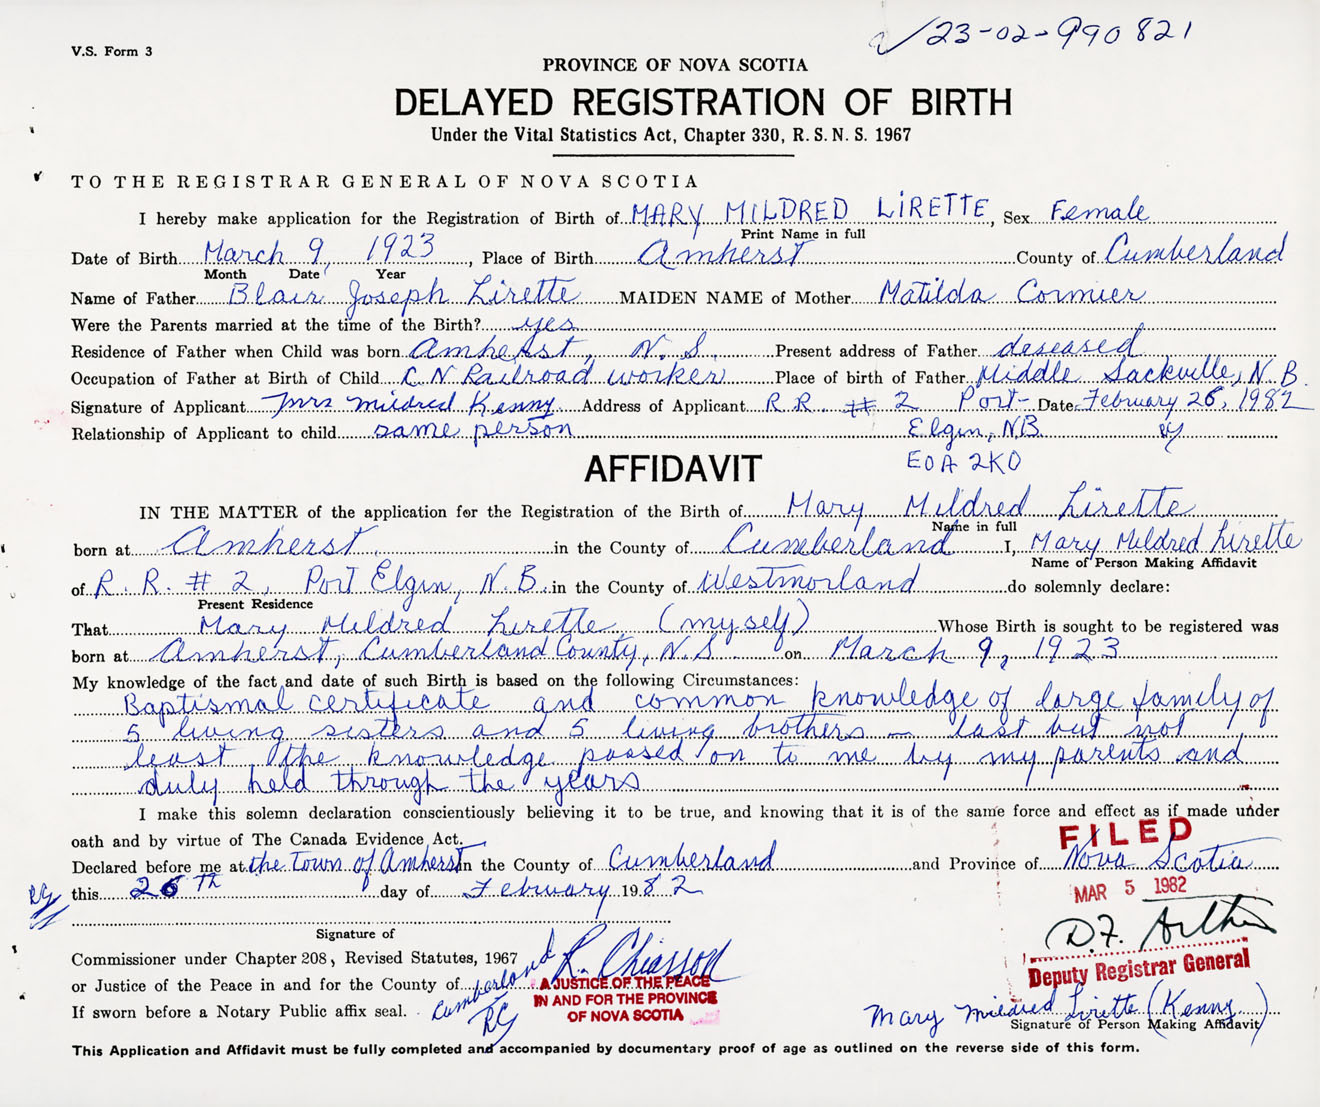 V.S. Form 3
23-02-990821
PROVINCE OF NOVA SCOTIA
DELAYED REGISTRATION OF BIRTH
Under the Vital Statistics Act, Chapter 330, R.S.N.S. 1967
TO THE REGISTRAR GENERAL OF NOVA SCOTIA
I hereby make application for the Registration of Birth of MARY MILDRED LIRETTE, Sex Female
Print Name in full
Date of Birth March 9, 1923, Place of Birth Amherst County of Cumberland
Month Date Year
Name of Father Blair Joseph Lirette MAIDEN NAME of Mother Matilda Cormier
Were the Parents married at the time of the Birth? yes
Residence of Father when Child was born Amherst, N.S. Present address of Father deseased
Occupation of Father at Birth of Child C N Railroad worker Place of birth of Father Middle Sackville, N.B.
Signature of Applicant Mrs Mildred Kenny Address of Applicant R.R. # 2 Port- Date February 26, 1982
Relationship of Applicant to child same person Elgin, NB.
E0A 2K0
AFFIDAVIT
IN THE MATTER of the application for the Registration of the Birth of Mary Mildred Lirette
Name in full
born at Amherst in the County of Cumberland I, Mary Mildred Lirette
Name of Person Making Affidavit
of R.R. # 2, Port Elgin, N.B. in the County of Westmorland do solemnly declare:
Present Residence
That Mary Mildred Lirette (myself) Whose Birth is sought to be registered was
born at Amherst, Cumberland County, N.S on March 9, 1923
My knowledge of the fact and date of such Birth is based on the following Circumstances:
Baptismal certificate and common knowledge of large family of
5 living sisters and 5 living brothers — last but not
least, the knowledge passed on to me by my parents and
duly held through the years
I make this solemn declaration conscientiously believing it to be true, and knowing that it is of the same force and effect as if made under
oath and by virtue of The Canada Evidence Act.
FILED
Declared before me at the Town of Amherst in the County of Cumberland and Province of Nova Scotia
RC this 26th day of February 1982
MAR 5 1982
D.F. Arthur
Signature of
Commissioner under Chapter 208, Revised Statutes, 1967
R. Chiasson
Deputy Registrar General
or Justice of the Peace in and for the County of Cumberland
A JUSTICE OF THE PEACE
IN AND FOR THE PROVINCE
OF NOVA SCOTIA
RC
If sworn before a Notary Public affix seal.
Mary Mildred Lirette (Kenny)
Signature of Person Making Affidavit
This Application and Affidavit must be fully completed and accompanied by documentary proof of age as outlined on the reverse side of this form.